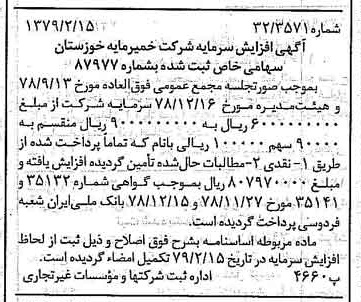 شماره۳۲/۳۵۷۱ ۱۳۷۹/۲/۱۵
آگهی افزایش سرمایه شرکت خمیرمایه خوزستان
سهامی خاص ثبت شده بشماره ۸۷۹۷۷
بموجب صورتجلسه مجمع عمومی فوق‌العاده مورخ ۷۸/۹/۱۳
و هیئت‌مدیره مورخ ۷۸/۱۲/۱۶ سرمایه شرکت از مبلغ
۶۰۰۰۰۰۰۰۰۰ ریال به ۹۰۰۰۰۰۰۰۰۰ ریال منقسم به
۹۰۰۰۰ سهم ۱۰۰۰۰۰ ریالی بانام که تماماً پرداخت شده از
طریق ۱- نقدی ۲-مطالبات حال‌شده تأمین گردیده افزایش یافته و
مبلغ ۸۰۷۹۷۰۰۰۰ ریال بموجب گواهی شماره ۳۵۱۳۲ و
۳۵۱۴۱ مورخ ۷۸/۱۱/۲۷ و ۷۸/۱۲/۱۵ بانک ملی‌ایران شعبه
فردوسی پرداخت گردیده است.
ماده مربوطه اساسنامه بشرح فوق اصلاح و ذیل ثبت از لحاظ
افزایش سرمایه در تاریخ ۷۹/۲/۱۵ تکمیل امضاء گردیده است.
پ۴۶۶۰ اداره ثبت شرکتها و مؤسسات غیرتجاری